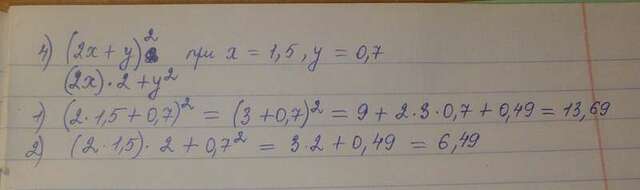 4) (2x + y)² при x = 1,5, y = 0,7
(2x) · 2 + y²
1) (2 · 1,5 + 0,7)² = (3 + 0,7)² = 9 + 2 · 3 · 0,7 + 0,49 = 13,69
2) (2 · 1,5) · 2 + 0,7² = 3 · 2 + 0,49 = 6,49